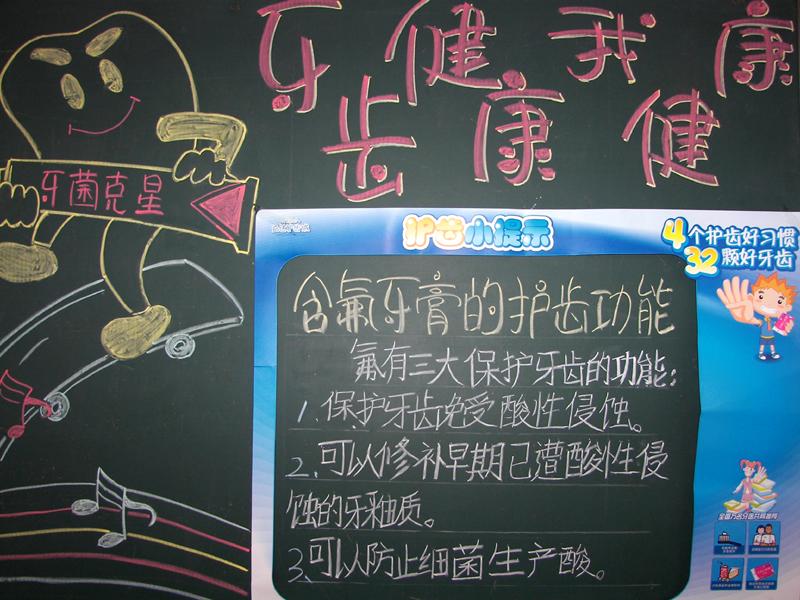 牙健我康
齿康健
牙菌克星
护齿小提示
4个护齿好习惯
32颗好牙齿
含氟牙膏的护齿功能
氟有三大保护牙齿的功能：
1.保护牙齿免受酸性侵蚀。
2.可以修补早期已遭酸性侵
蚀的牙釉质。
3.可以防止细菌生产酸。